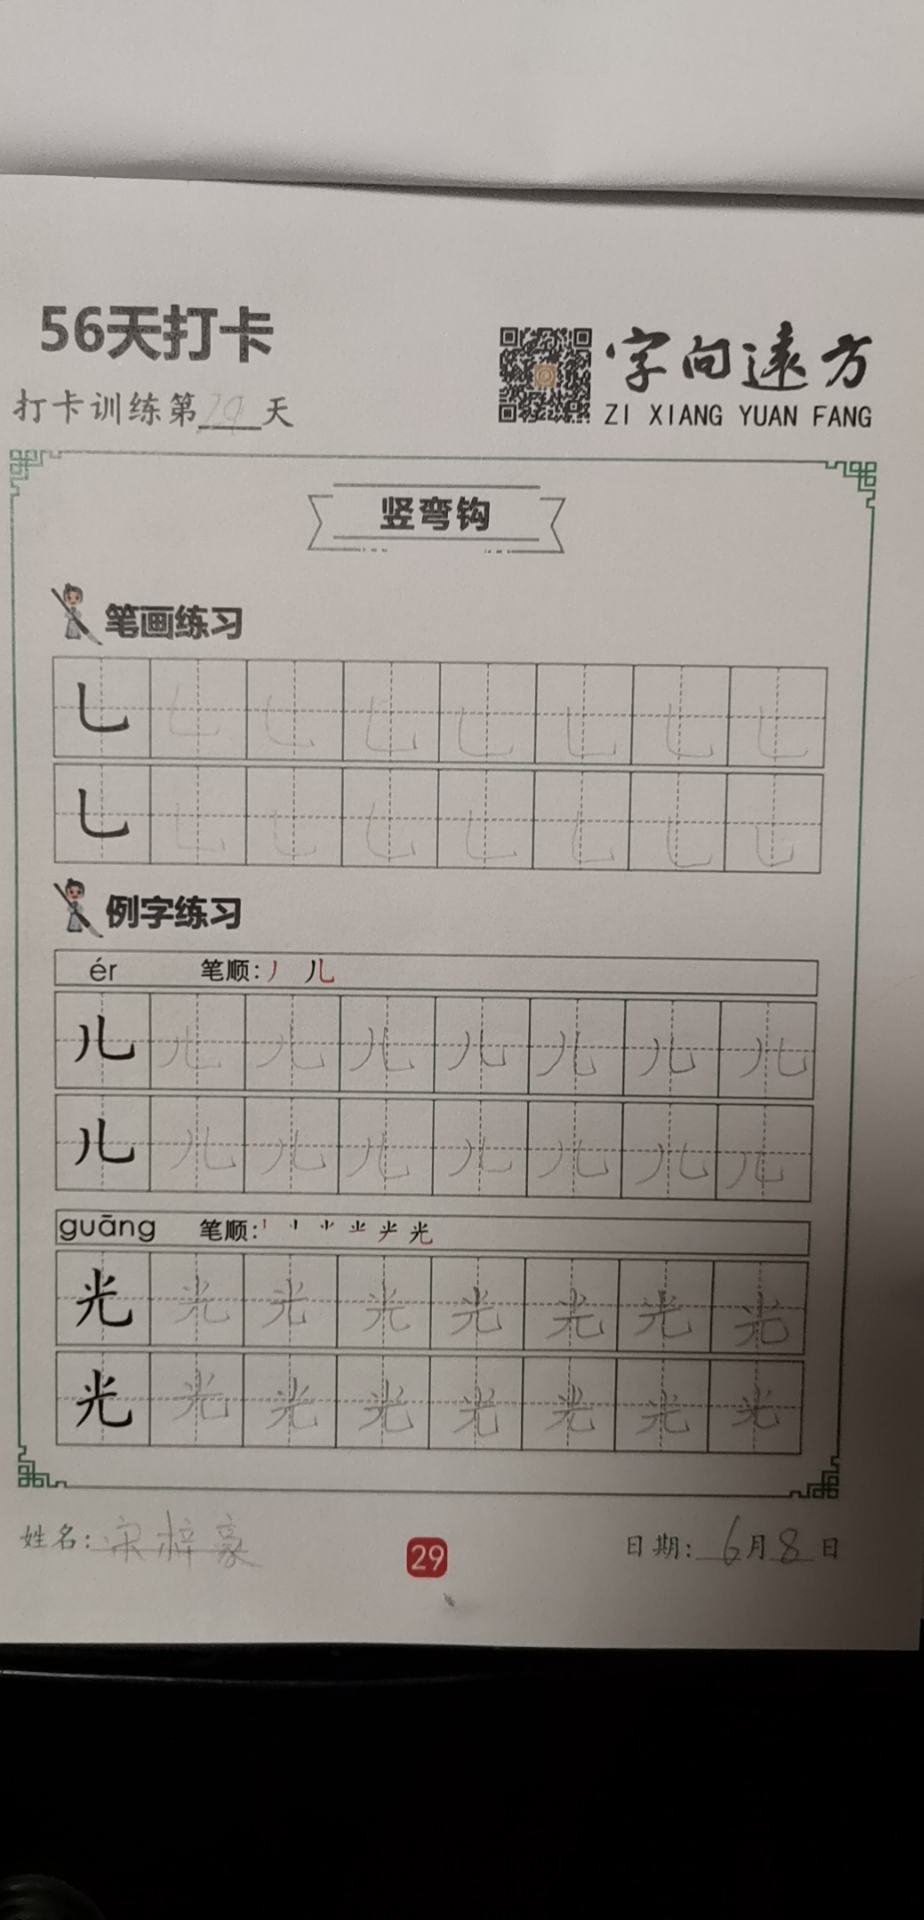 56天打卡
打卡训练第29天
字向遠方
ZI XIANG YUAN FANG
竖弯钩
笔画练习
乚 乚 乚 乚 乚 乚 乚 乚
乚 乚 乚 乚 乚 乚 乚 乚
例字练习
ér 笔顺：丿 儿
儿 儿 儿 儿 儿 儿 儿 儿
儿 儿 儿 儿 儿 儿 儿 儿
guāng 笔顺：光
光 光 光 光 光 光 光 光
光 光 光 光 光 光 光 光
姓名：宋梓豪
29
日期：6月8日